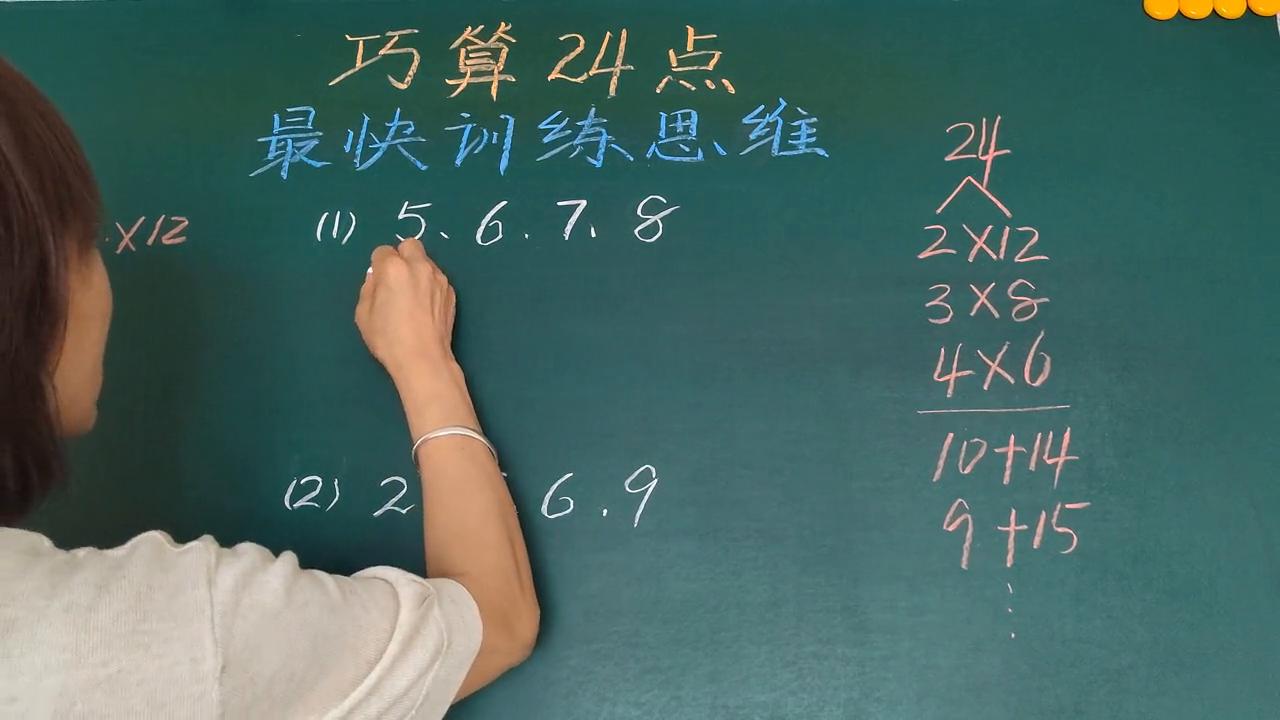 巧算24点
最快训练思维
×12
(1) 5、6.7、8
(2) 2 6.9
24
2×12
3×8
4×6
10+14
9+15
⋮